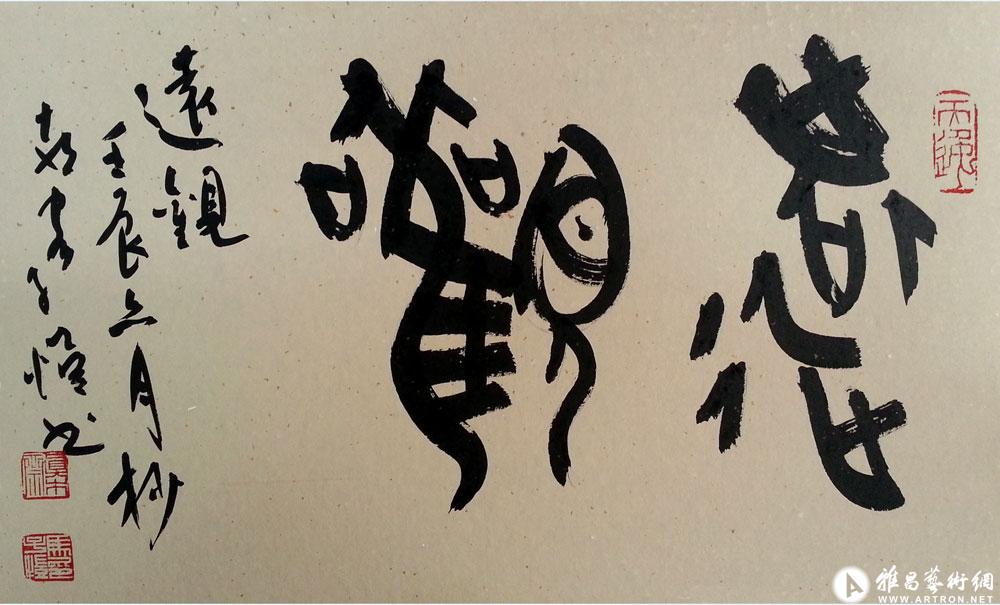 遠觀
遠觀
壬辰六月杪
子愷书
雅昌藝術網
WWW.ARTRON.NET